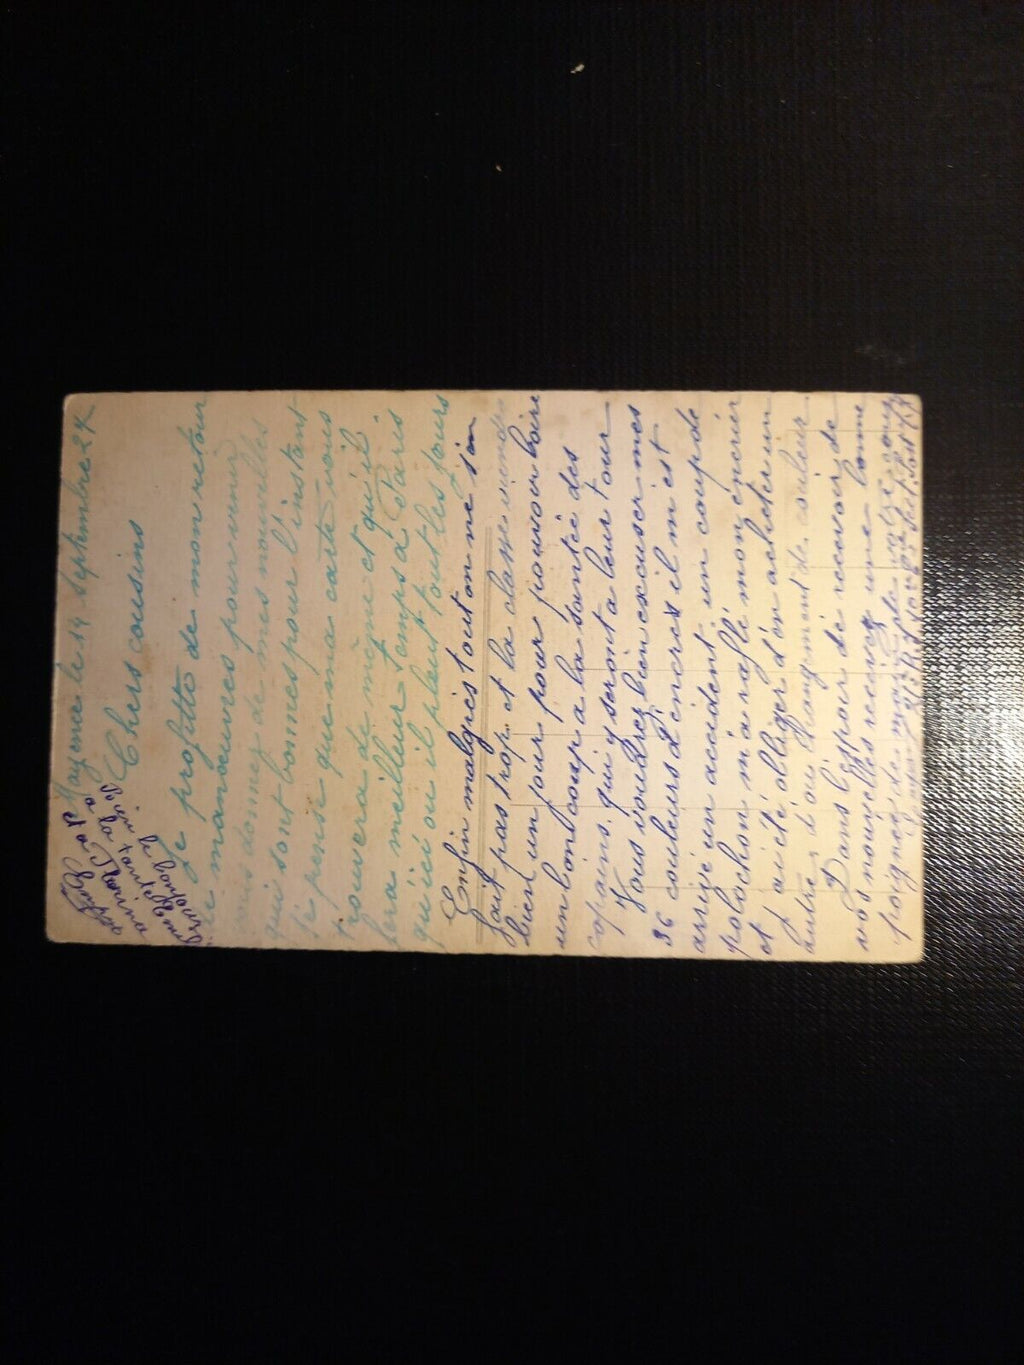 Mayence le 14 Septembre 27
Chers cousins
Je profitte de mon retour
de manoeuvres pour venir
vous donnez de mes nouvelles
qui sont bonnes pour l'instant
je pense que ma carte vous
trouvera de même et qu'il
fera meilleur temps a Paris
qu'ici ou il pleut tout les jours
Enfin malgrès tout on ne s'en
fait pas trop et la classe viendra
bien un jour pour pouvoir boire
un bon coup a la santée des
copains qui y seront a leur tour
Vous voudrez bien excuser mes
36 couleurs d'encres il m'est
arrivé un accident un coup de
polochon m'a raflé mon encrier
et j'ai été obliger d'en acheter un
autre d'ou changment de couleur
Dans l'espoir de recevoir de
vos nouvelles recevez une bonne
poignée de main de